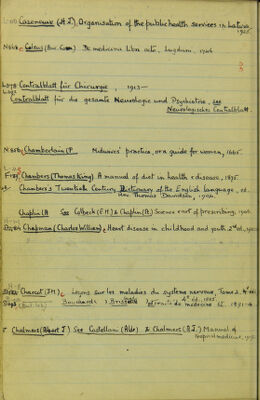 Cazeneuve (H.J.), Organisation of the public health services in Latvia, 1925.
Celsus (Aur. Corn.) De medicina libri octo, Lugduni, 1746
Centralblatt für Chirurgie, 1913—
Centralblatt für die gesamte Neurologie und Psychiatrie, see
Neurologisches Centralblatt.
Chamberlain (P. Midwives' practice, or a guide for women, 1665.
Chambers (Thomas King) A manual of diet in health & disease, 1875.
Chambers's Twentieth Century Dictionary of the English language, ed.
Rev. Thomas Davidson, 1904.
Chaplin (A See Colbeck (E.H.) & Chaplin (A.) Science & art of prescribing, 1902.
Chapman (Charles William), Heart disease in childhood and youth, 2nd ed.,
Charcot (J.M.), Leçons sur les maladies du système nerveux, Tome 2, 4e éd.
Bouchard & Brissaud, Traité de médecine
Chalmers (Albert J.) See Castellani (Aldo) & Chalmers (A.J.) Manual of
tropical medicine,